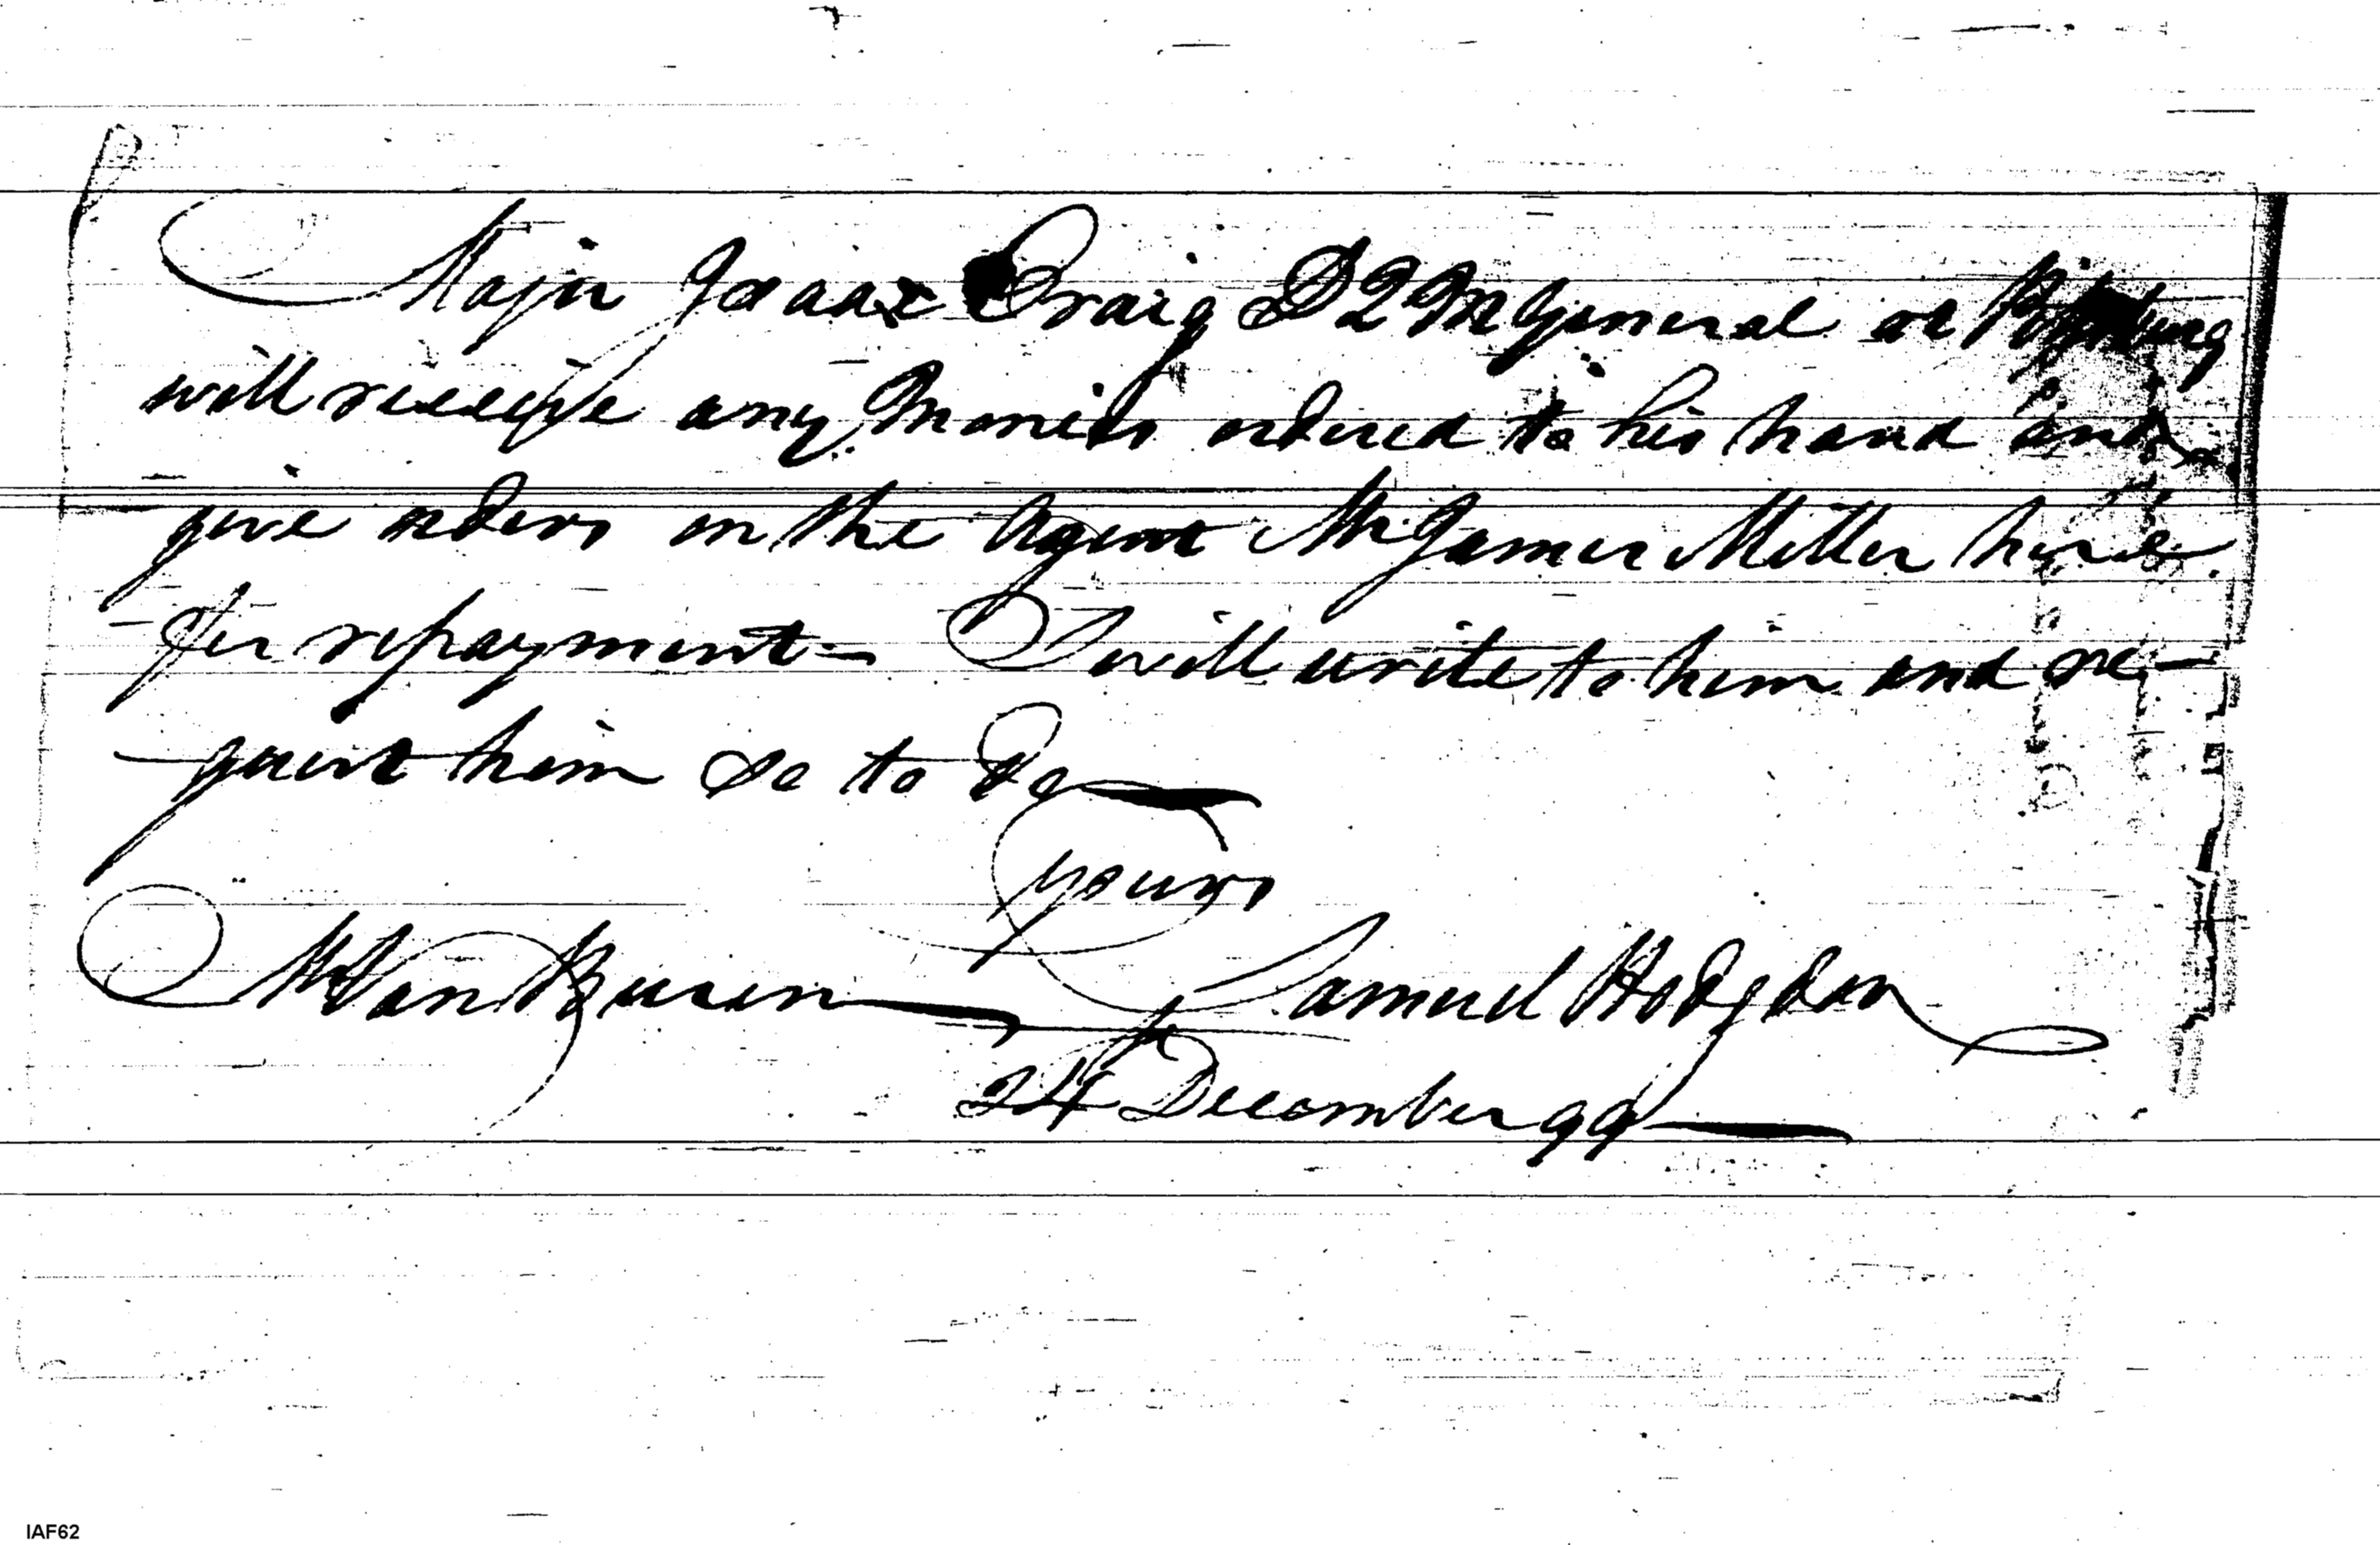 Major Isaac Craig D Q M General at Pittsburg
will receive any Monies ordered to his hand and
give orders on the Agent Mr James Miller here
for repayment — I will write to him and re-
quest him so to do —
yours
Samuel Hodgdon
Mr Van Buren
24 December 99
IAF62